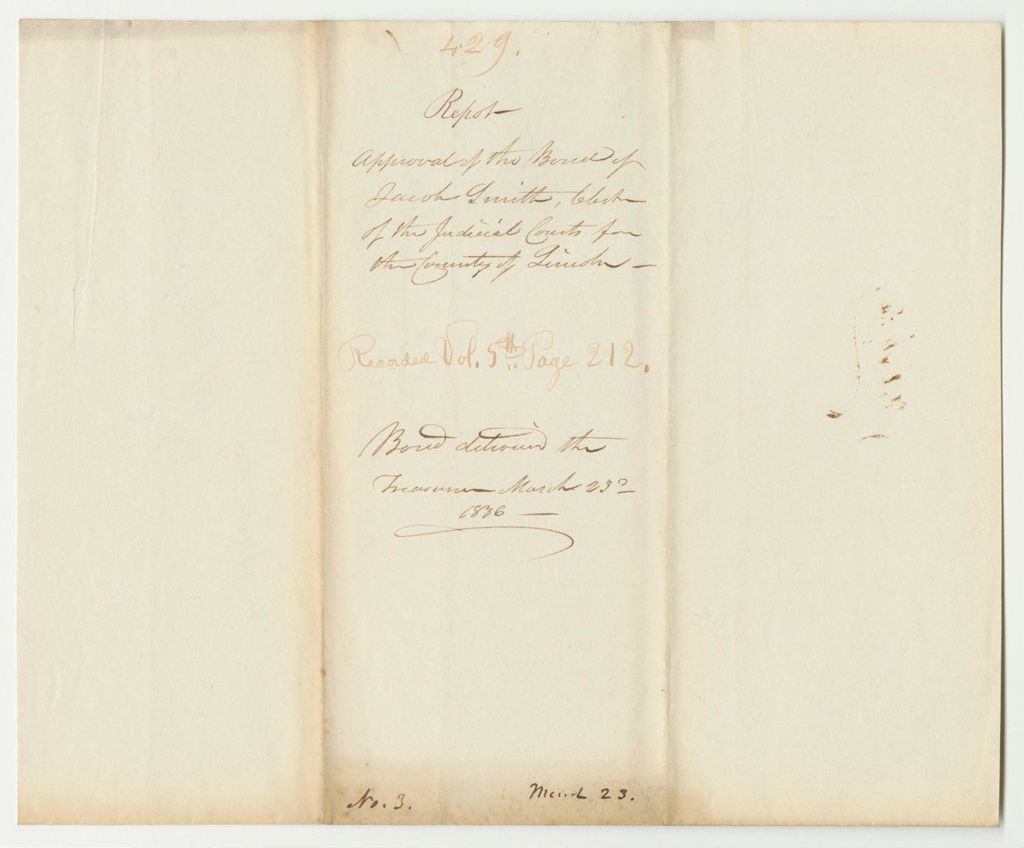 429.
Repot
Approval of the Bond of
Jacob Smith, Clerk
of the Judicial Courts for
the County of Lincoln –
Recorded Vol. 5th Page 212.
Bond delivered the
Treasurer March 23d
1836 –
No. 3.
March 23.